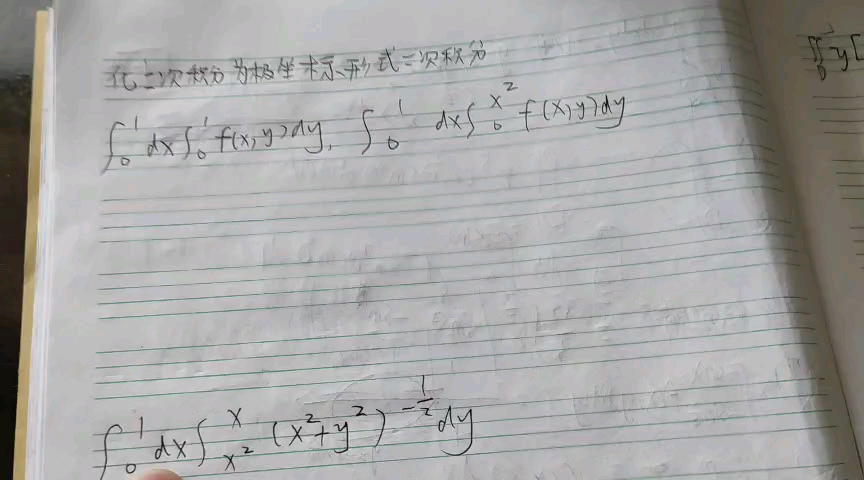 化二次积分为极坐标示形式二次积分
∫₀¹ dx ∫₀¹ f(x,y)dy, ∫₀¹ dx ∫₀^{x²} f(x,y)dy
∫₀¹ dx ∫_{x²}^{x} (x²+y²)^{-1/2} dy
∬_D y[